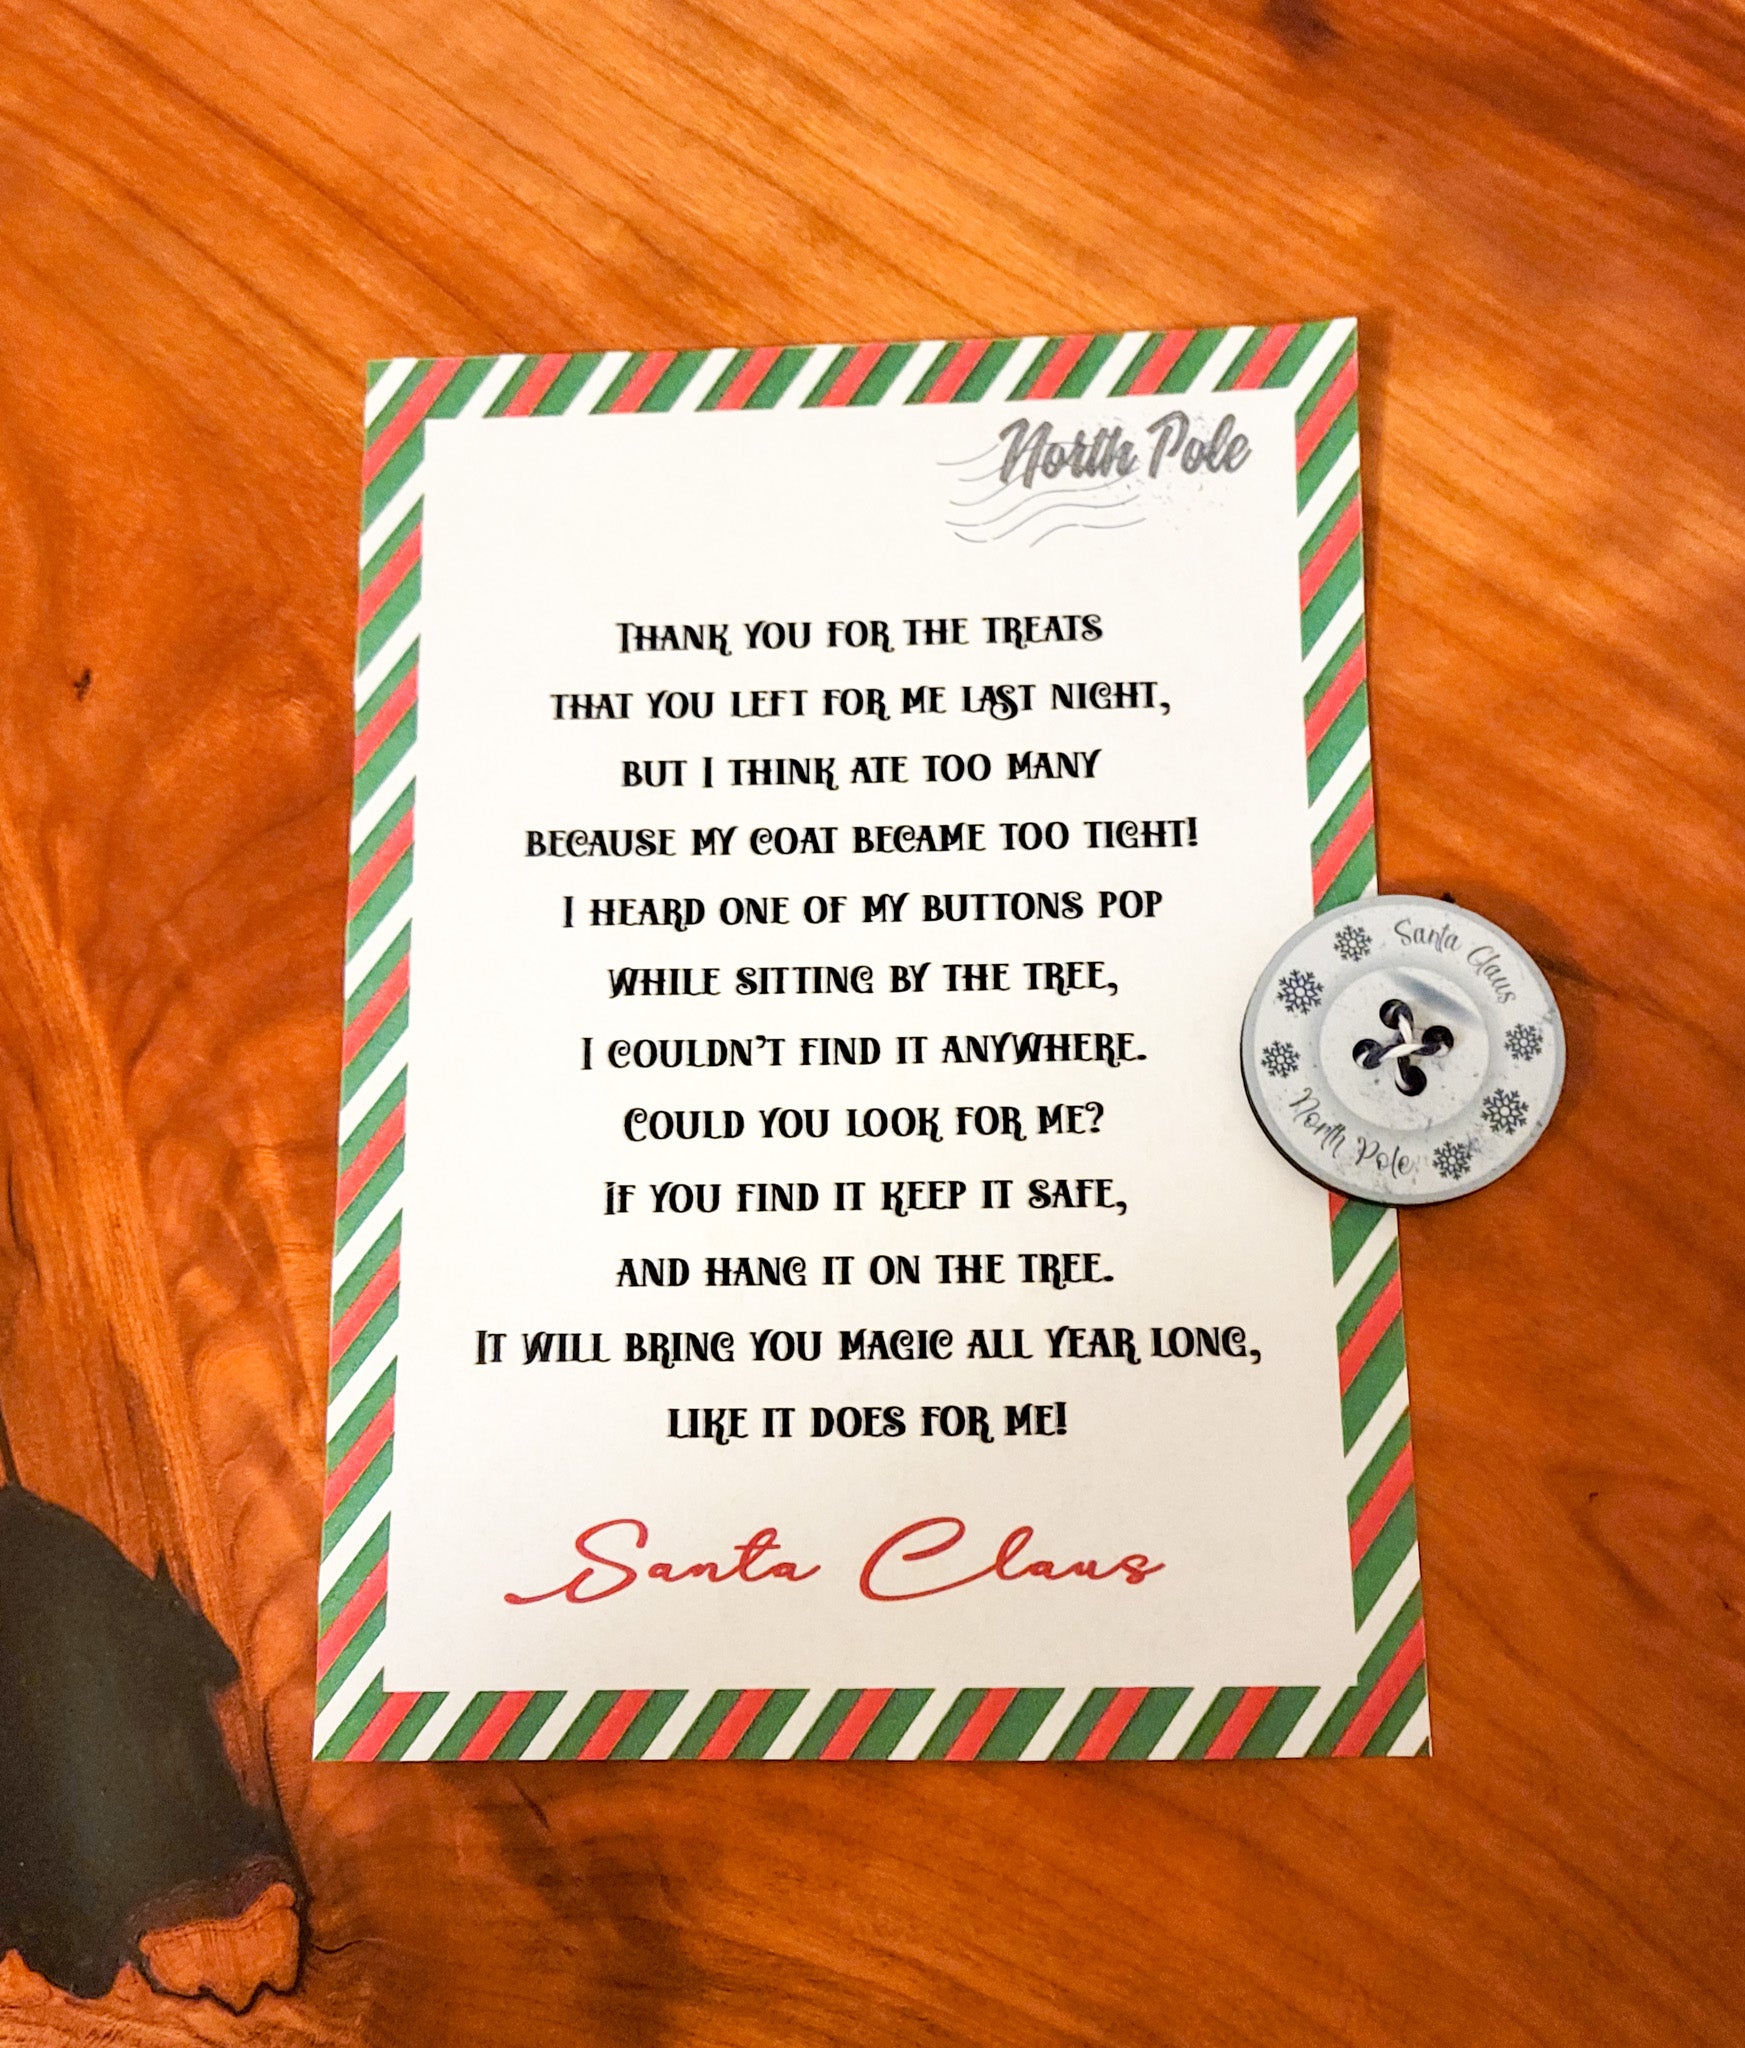 North Pole
Thank you for the treats
that you left for me last night,
but I think ate too many
because my coat became too tight!
I heard one of my buttons pop
while sitting by the tree,
I couldn't find it anywhere.
Could you look for me?
If you find it keep it safe,
and hang it on the tree.
It will bring you magic all year long,
like it does for me!
Santa Claus
Santa Claus
North Pole